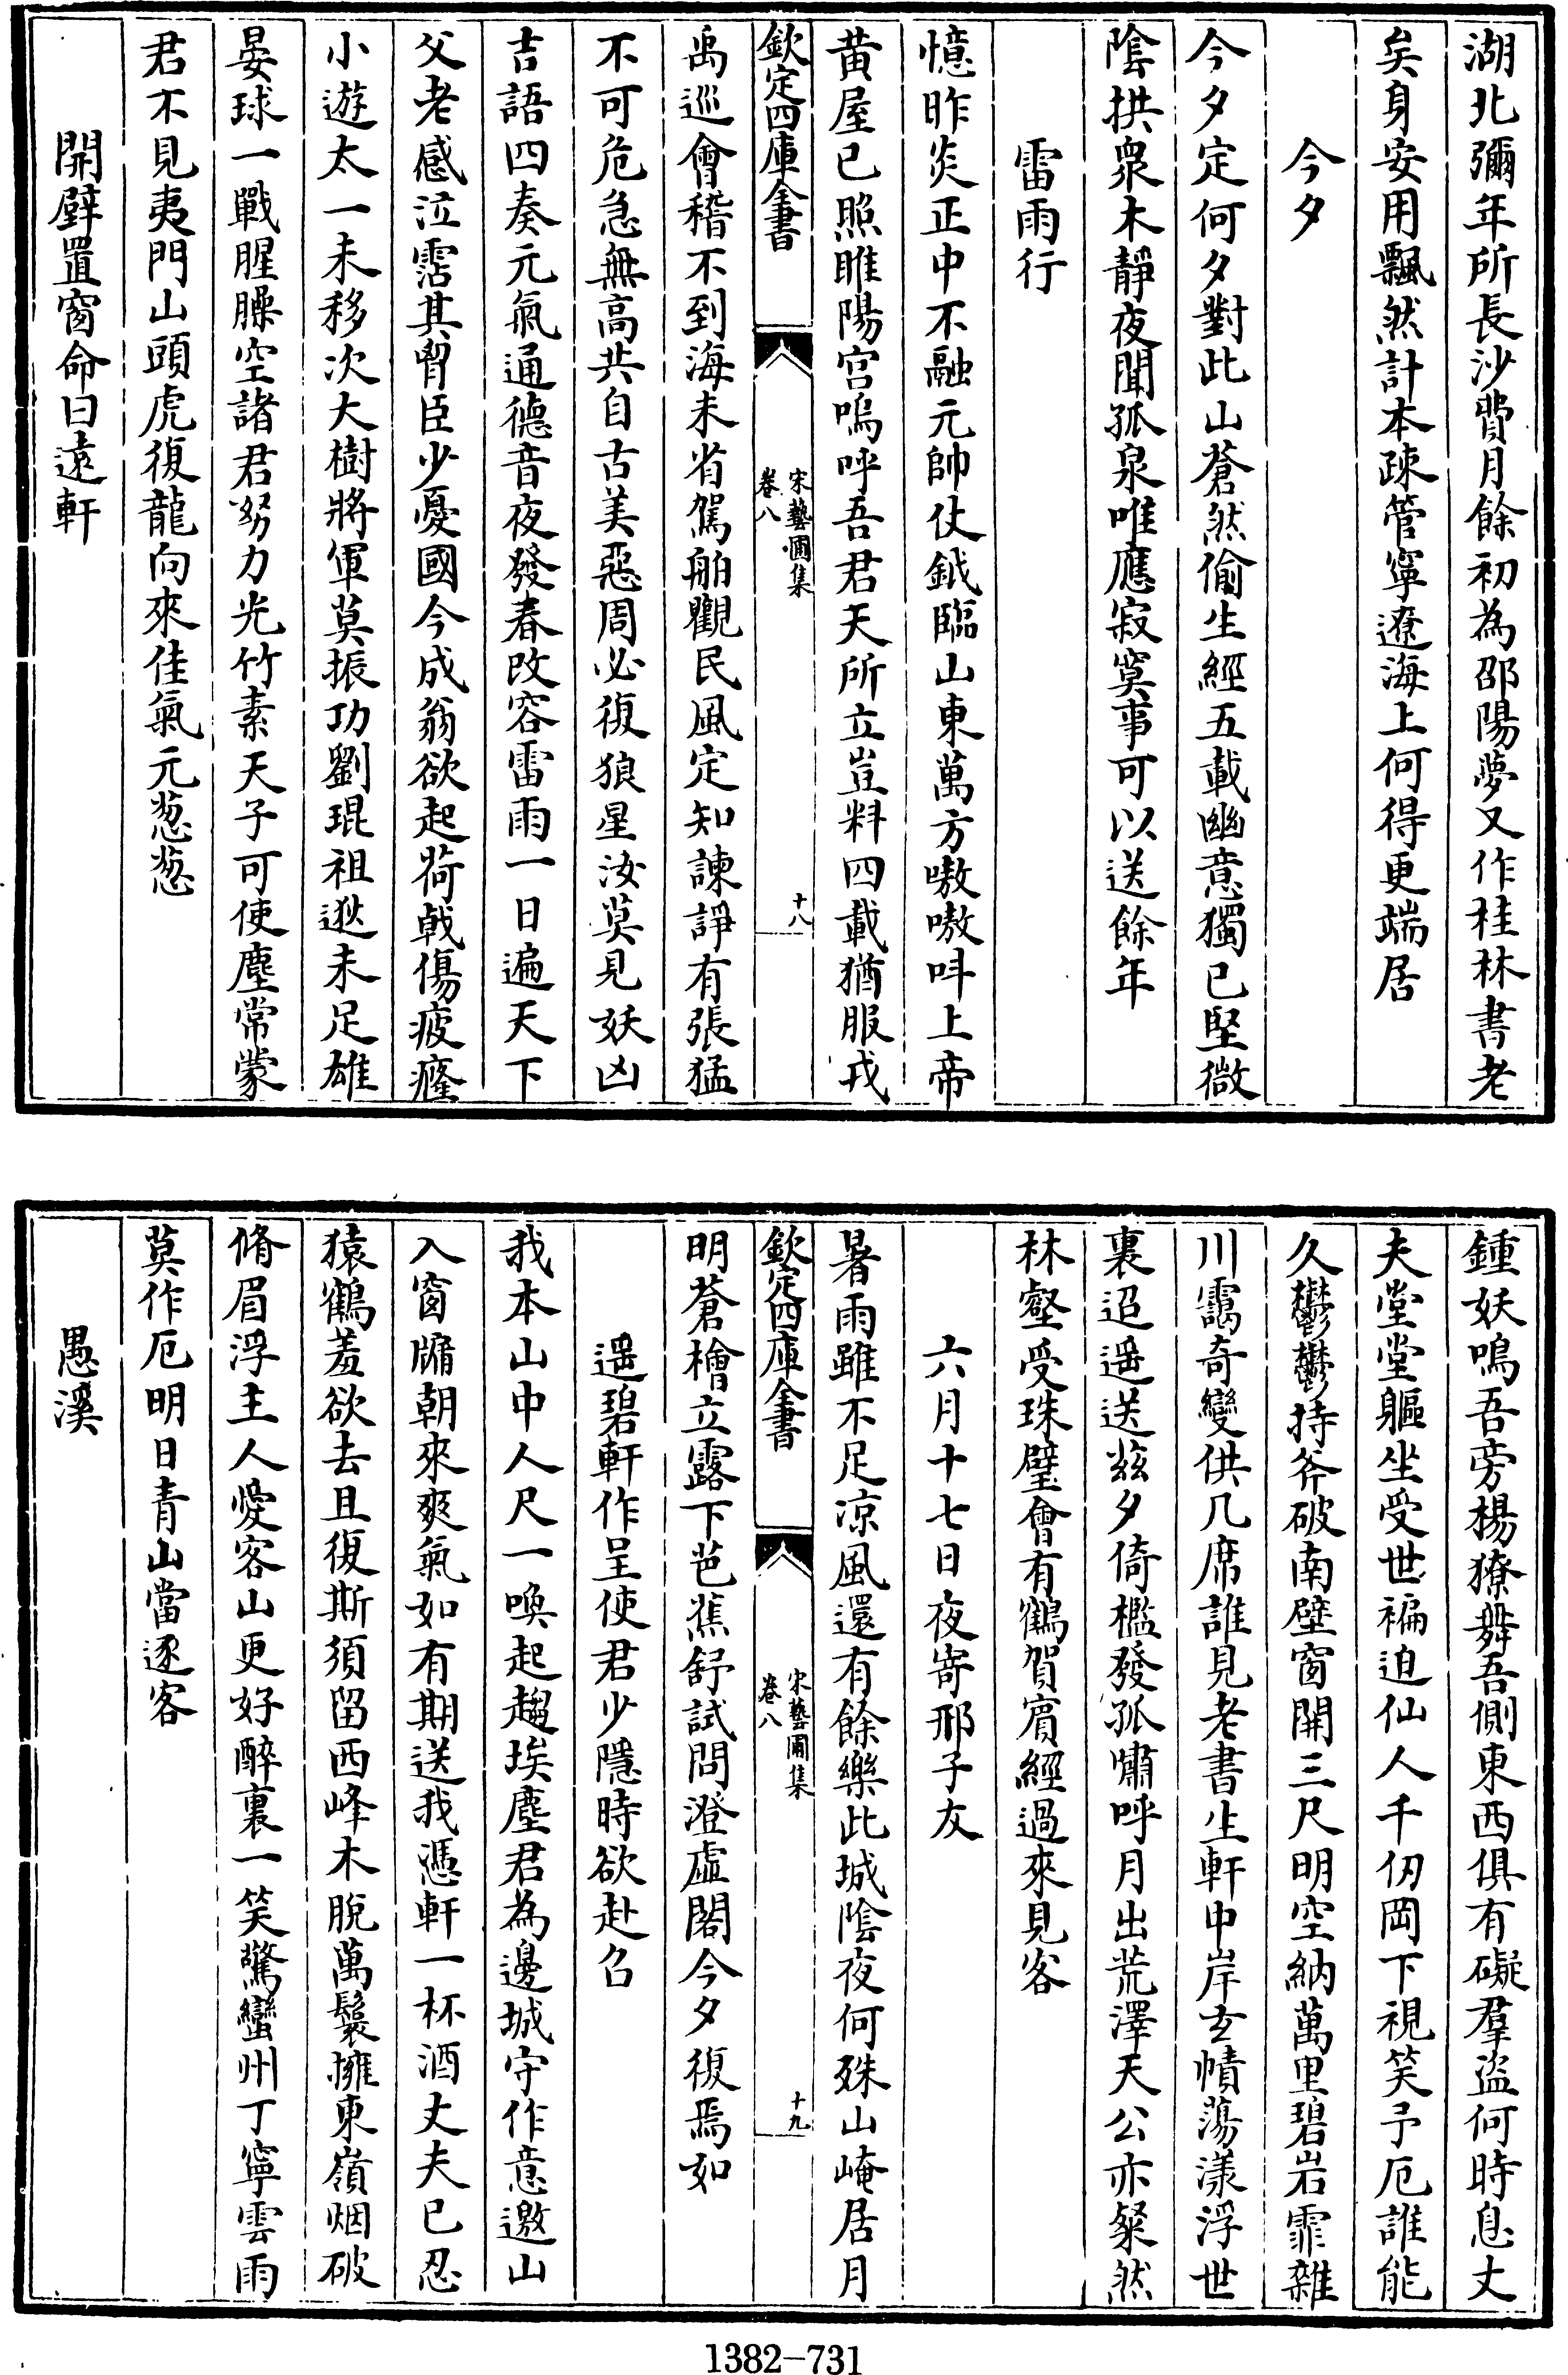 湖北彌年所長沙費月餘初為邵陽夢又作桂林書老
矣身安用飄然計本疎管寧遼海上何得更端居
今夕
今夕定何夕對此山蒼然偷生經五載幽意獨已堅微
陰拱衆木靜夜聞孤泉唯應寂寞事可以送餘年
雷雨行
憶昨炎正中不融元帥仗鉞臨山東萬方嗷嗷呌上帝
黄屋已照睢陽宫嗚呼吾君天所立豈料四載猶服戎
欽定四庫全書
宋藝圃集
卷八
十八
禹巡會稽不到海未省駕舶觀民風定知諫諍有張猛
不可危急無高共自古美惡周必復狼星汝莫見妖凶
吉語四奏元氣通德音夜發春改容雷雨一日遍天下
父老感泣霑其胷臣少憂國今成翁欲起荷戟傷疲癃
小遊太一未移次大樹將軍莫振功劉琨祖逖未足雄
晏球一戰腥臊空諸君努力光竹素天子可使塵常蒙
君不見夷門山頭虎復龍向來佳氣元葱葱
開壁置窗命曰遠軒
鍾妖鳴吾旁楊獠舞吾側東西俱有礙羣盜何時息丈
夫堂堂軀坐受世褊迫仙人千仞岡下視笑予厄誰能
久鬱鬱持斧破南壁窗開三尺明空納萬里碧岩霏雜
川靄奇變供几席誰見老書生軒中岸玄幘蕩漾浮世
裏迢遥送兹夕倚檻發孤嘯呼月出荒澤天公亦粲然
林壑受珠璧會有鶴賀賓經過來見客
六月十七日夜寄邢子友
暑雨雖不足凉風還有餘樂此城陰夜何殊山崦居月
欽定四庫全書
宋藝圃集
卷八
十九
明蒼檜立露下芭蕉舒試問澄虛閣今夕復焉如
遥碧軒作呈使君少隱時欲赴召
我本山中人尺一喚起趨埃塵君為邊城守作意邀山
入窗牖朝來爽氣如有期送我憑軒一杯酒丈夫已忍
猿鶴羞欲去且復斯須留西峰木脫萬鬟擁東嶺烟破
脩眉浮主人愛客山更好醉裏一笑驚蠻州丁寧雲雨
莫作厄明日青山當逐客
愚溪
1382-731